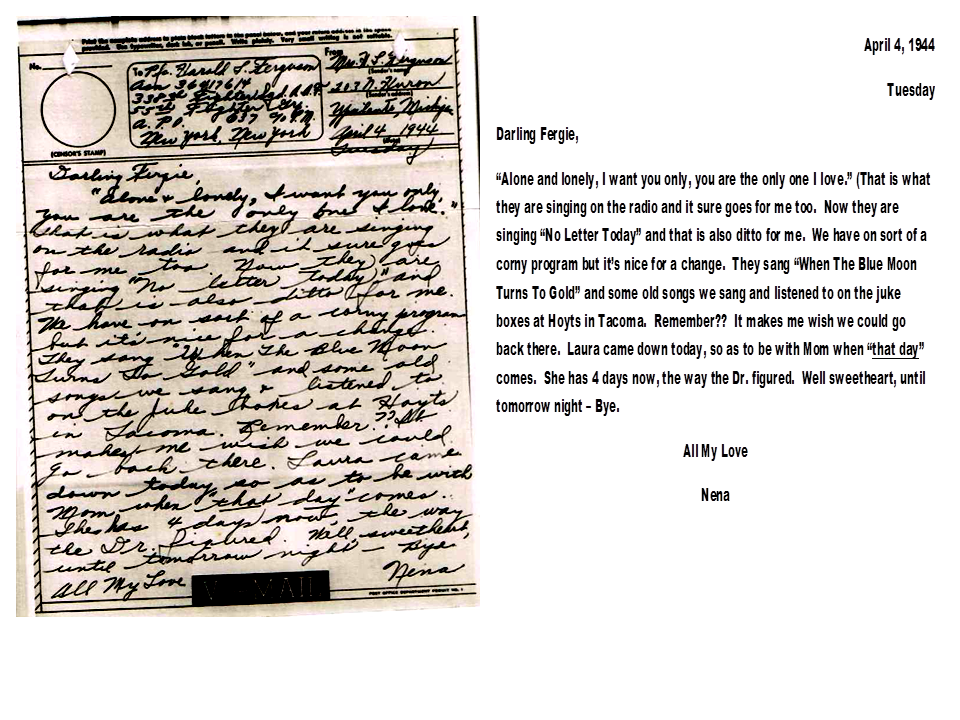 Print the complete address in plain block letters in the panel below, and your return address in the space
provided. Use typewriter, dark ink, or pencil. Write plainly. Very small writing is not suitable.
No.
(CENSOR'S STAMP)
To Pfc. Harold L. Ferguson
338th Fighter Sqd. A.A.F.
55th Fighter Gr.
A.P.O. 637 % P.M.
New York, New York
From
Mrs. H. L. Ferguson
(Sender's name)
203 N. Huron
(Sender's address)
Ypsilanti, Michigan
April 4 1944
(Date)
Tuesday
Darling Fergie,
"Alone & lonely, I want you only,
you are the only one I love."
That is what they are singing
on the radio and it sure goes
for me too. Now they are
singing "No letter today" and
that is also ditto for me.
We have on sort of a corny program
but it's nice for a change.
They sang "When The Blue Moon
Turns To Gold" and some old
songs we sang & listened to
on the juke boxes at Hoyts
in Tacoma. Remember?? It
makes me wish we could
go back there. Laura came
down today, so as to be with
Mom when "that day" comes.
She has 4 days now, the way
the Dr. figured. Well sweetheart,
until tomorrow night – Bye
All My Love
Nena
V-MAIL
POST OFFICE DEPARTMENT PERMIT NO. 1
April 4, 1944
Tuesday
Darling Fergie,
“Alone and lonely, I want you only, you are the only one I love.” (That is what
they are singing on the radio and it sure goes for me too. Now they are
singing “No Letter Today” and that is also ditto for me. We have on sort of a
corny program but it’s nice for a change. They sang “When The Blue Moon
Turns To Gold” and some old songs we sang and listened to on the juke
boxes at Hoyts in Tacoma. Remember?? It makes me wish we could go
back there. Laura came down today, so as to be with Mom when “that day”
comes. She has 4 days now, the way the Dr. figured. Well sweetheart, until
tomorrow night – Bye.
All My Love
Nena